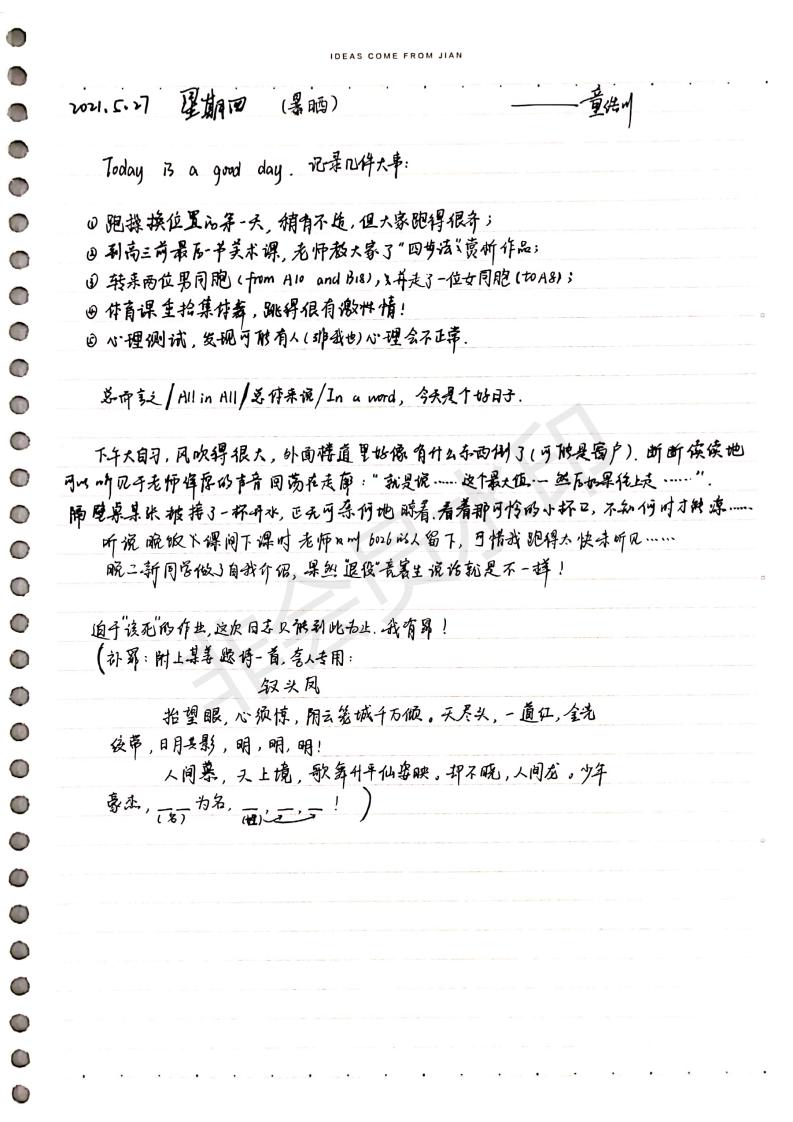 IDEAS COME FROM JIAN
2021.5.27 星期四 (暴晒) ——童皓川
Today is a good day. 记录几件大事:
① 跑操换位置的第一天, 稍有不适, 但大家跑得很齐;
② 到高三前最后一节美术课, 老师教大家了"四步法"赏析作品;
③ 转来两位男同胞(from A10 and B18), 又并走了一位女同胞(to A8);
④ 体育课重拾集体舞, 跳得很有激情!
⑤ 心理测试, 发现可能有人(非我也)心理会不正常.
总而言之/All in All/总体来说/In a word, 今天是个好日子.
下午大自习, 风吹得很大, 外面楼道里好像有什么东西倒了(可能是窗户). 断断续续地
可以听见于老师浑厚的声音回荡在走廊: "就是说……这个最大值……然后如果往上走……".
隔壁桌某张被接了一杯开水, 正无可奈何地晾着. 看着那可怜的小杯口, 不知何时才能凉……
听说晚饭课间下课时老师又叫6026的人留下, 可惜我跑得太快未听见……
晚二新同学做了自我介绍, 果然"退役"竞赛生说话就是不一样!
迫于"该死"的作业, 这次日志只能到此为止. 我有罪!
(补罪: 附上某姜题诗一首, 含人专用:
钗头凤
抬望眼, 心须惊, 阴云笼城千万倾。天尽头, 一道红, 金光
绞带, 日月共影, 明, 明, 明!
人间幕, 天上境, 歌舞升平仙姿映。却不晓, 人间龙。少年
豪杰, __ __为名, __, __, __! )
(名) (姓)
非会员水印